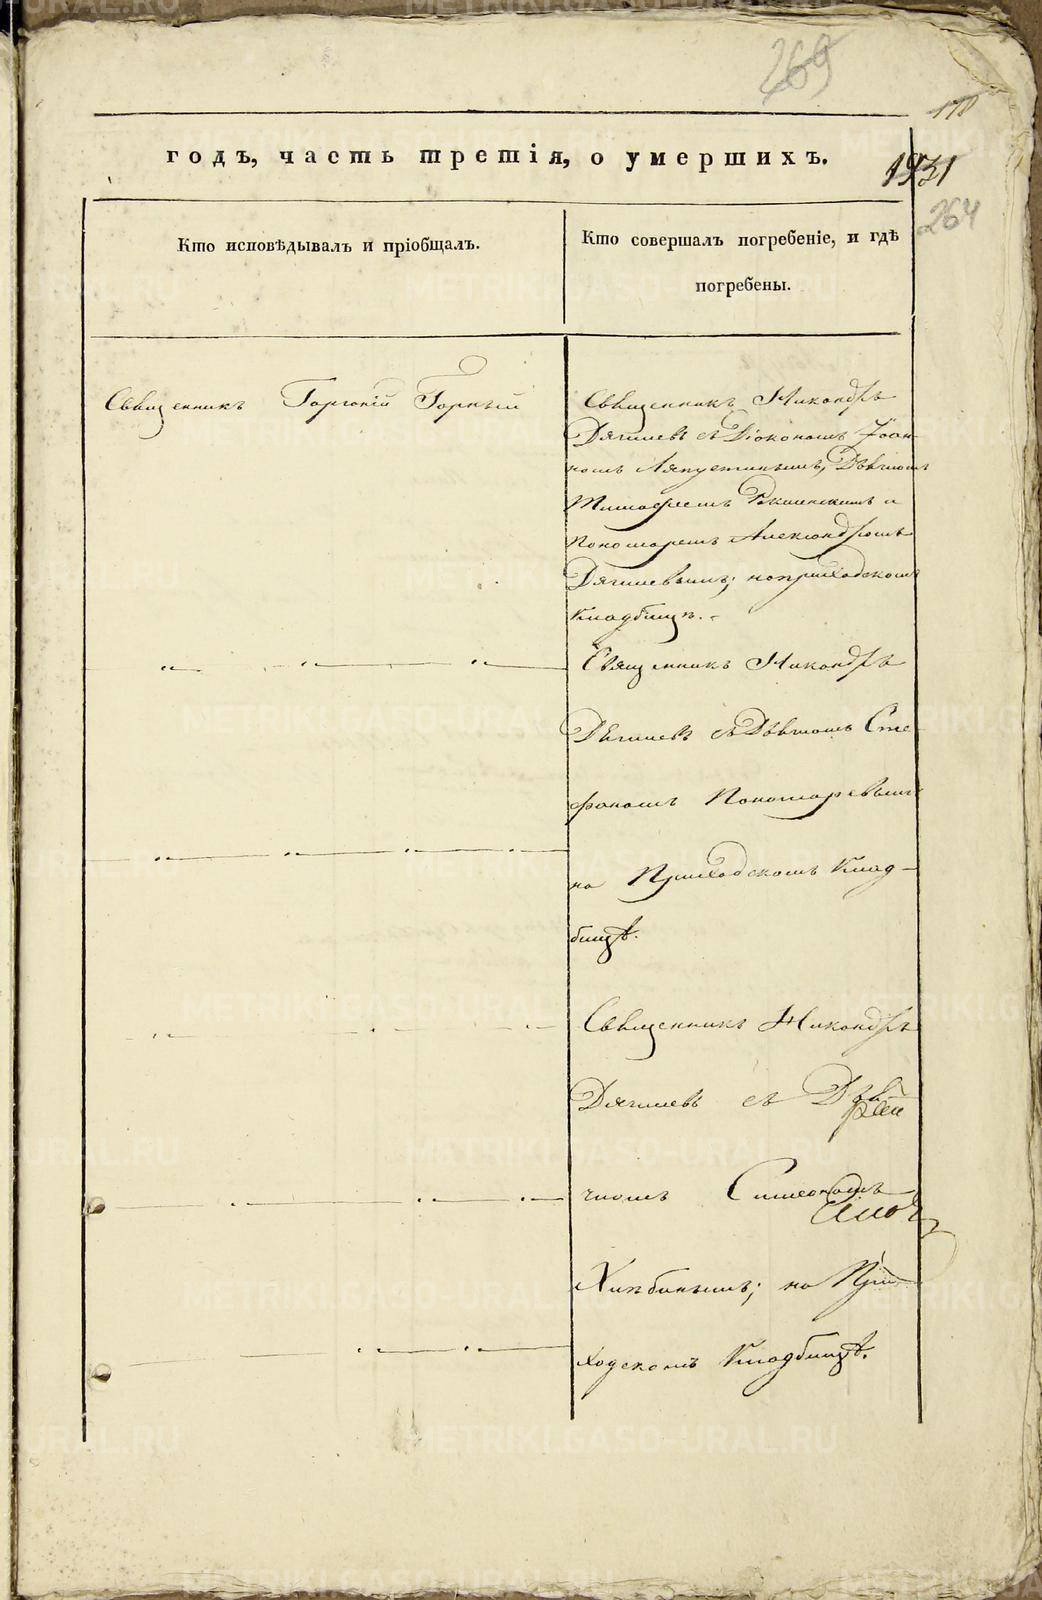 269
178
годъ, часть третія, о умершихъ.
1931
264
Кто исповѣдывалъ и пріобщалъ.
Кто совершалъ погребеніе, и гдѣ
погребены.
Священникъ Горгоній Горный
Священникъ Никандръ
Дягилевъ съ Діакономъ Іоан-
номъ Ляпустинымъ, Дьячкомъ
и
Пономаремъ Александромъ
Дягилевымъ; на приходскомъ
Кладбищѣ.
Священникъ Никандръ
Дягилевъ съ Дьячкомъ Сте-
фаномъ Пономаревымъ
на Приходскомъ Клад-
бищѣ.
Священникъ Никандръ
Дягилевъ съ
Симеономъ
Хлѣбинымъ; на При-
ходскомъ Кладбищѣ.
METRIKI.GASO-URAL.RU